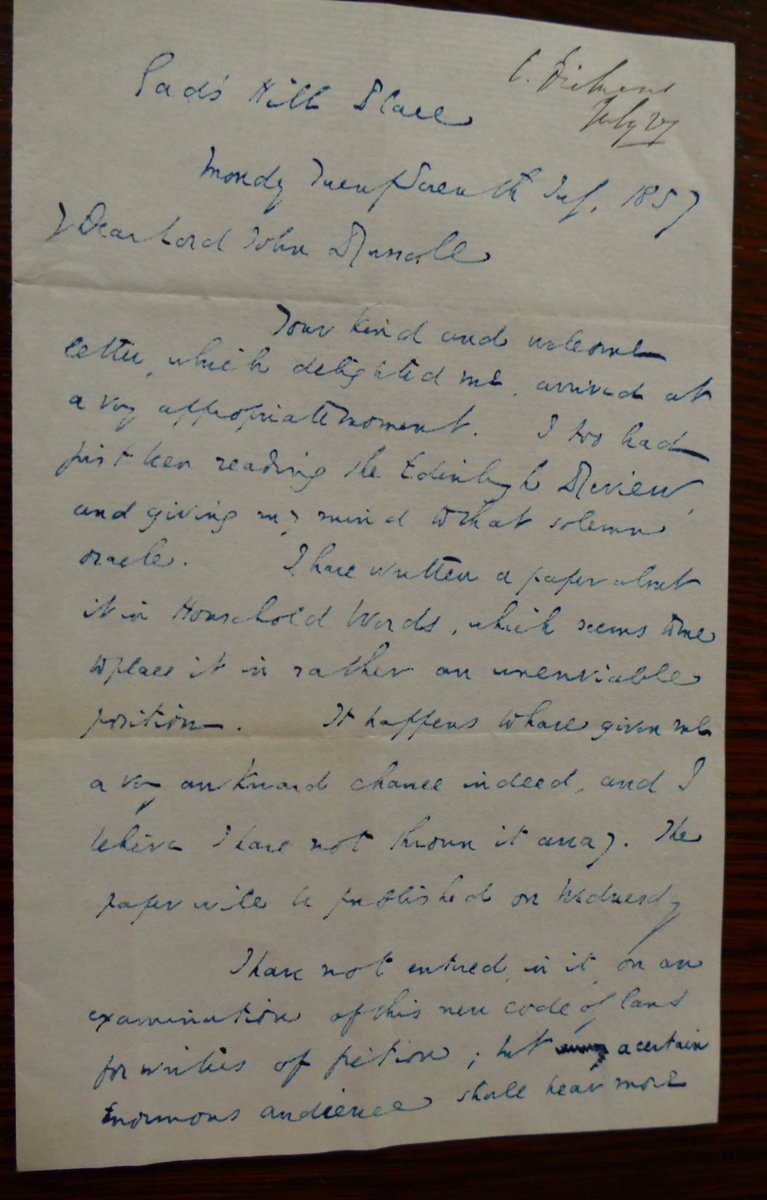 C. Dickens
July 27
Gad's Hill Place
Monday Twenty Seventh July, 1857
My Dear Lord John Russell
Your kind and welcome
letter, which delighted me, arrived at
a very appropriate moment. I too had
just been reading the Edinburgh Review,
and giving my mind to that solemn
oracle. I have written a paper about
it in Household Words, which seems to me
to place it in rather an unenviable
position. It happens to have given me
a very awkward chance indeed, and I
believe I have not thrown it away. The
paper will be published on Wednesday
I have not entered, in it, on an
examination of this new code of
for writers of fiction; but a certain
Enormous audience shall hear more